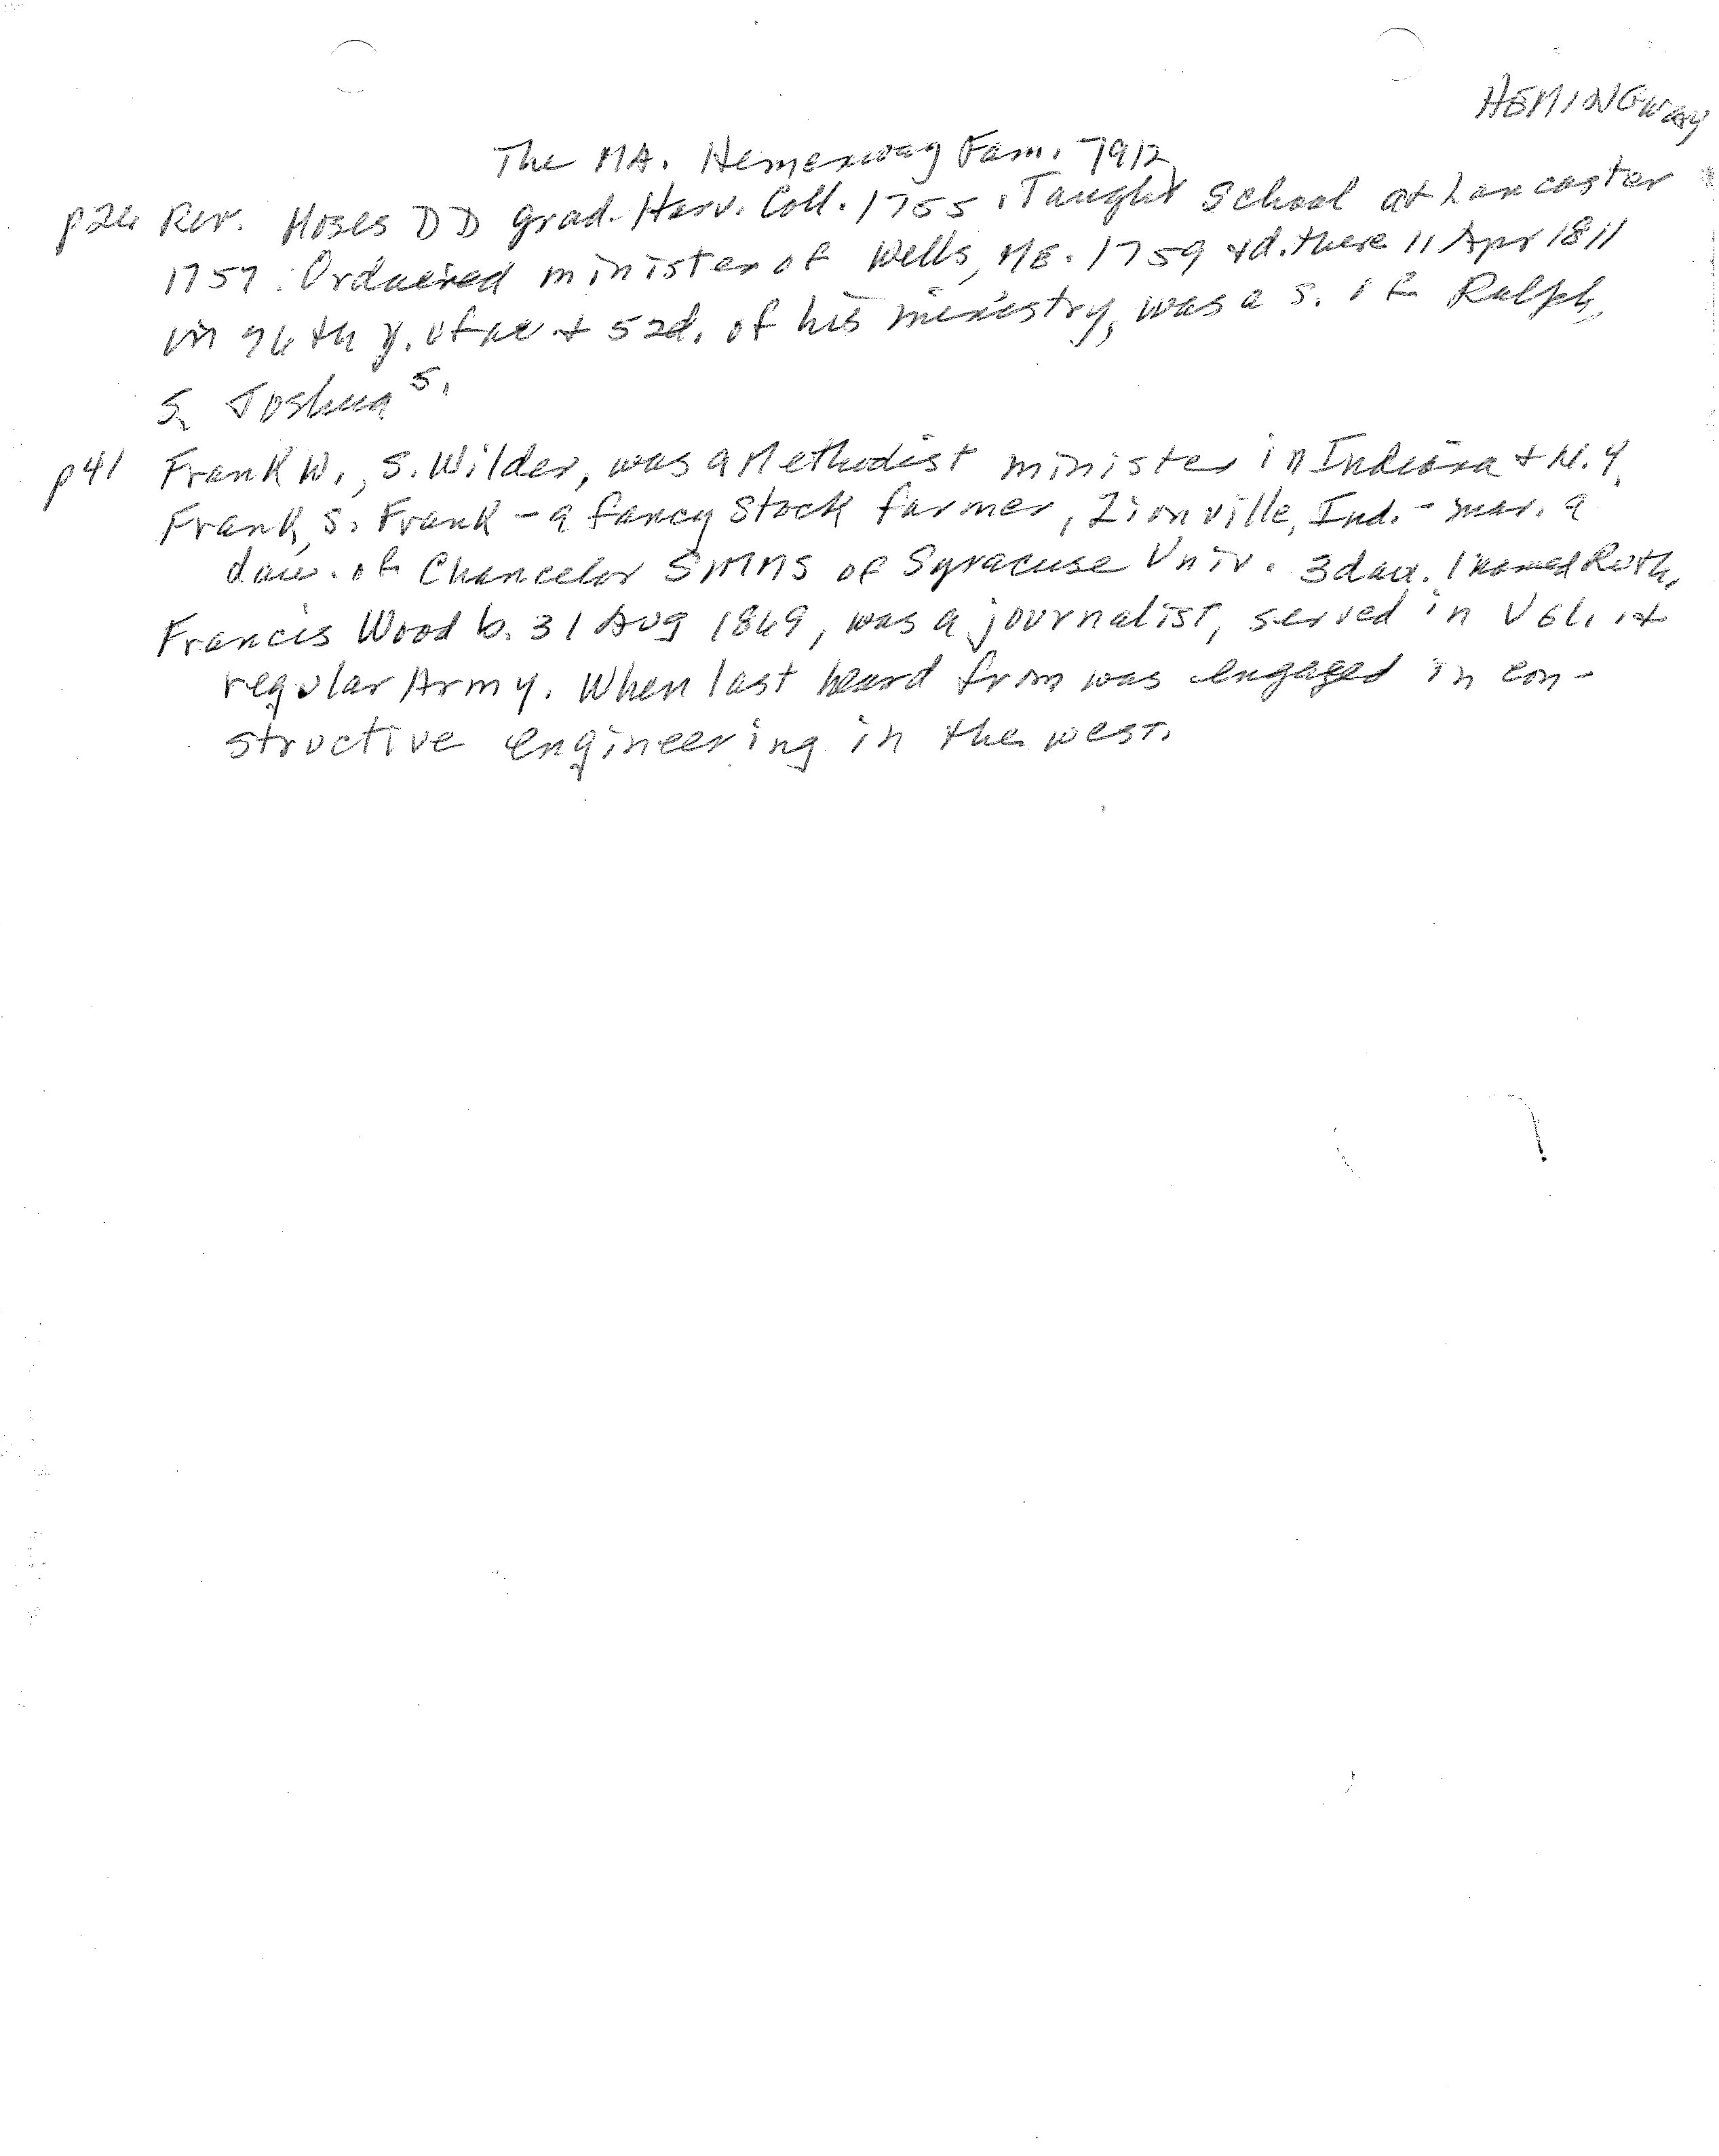 HEMINGWAY
The MA. Hemenway Fam. 1912
p26 Rev. Moses DD grad. Harv. Coll. 1755. Taught School at Lancaster
1757. Ordained minister of Wells, ME. 1759 + d. there 11 Apr 1811
in 76th y. of ae + 52d. of his ministry, was a s. of Ralph,
s. Joshua 5.
p41 Frank W., s. Wilder, was a Methodist minister in Indiana + N.Y.
Frank, s. Frank - a fancy Stock farmer, Zionville, Ind. - mar. a
dau. of Chancelor SIMMS of Syracuse Univ. 3 dau. 1 named Ruth,
Francis Wood b. 31 Aug 1869, was a journalist, served in Vol. +
regular Army. When last heard from was engaged in con-
structive engineering in the west.